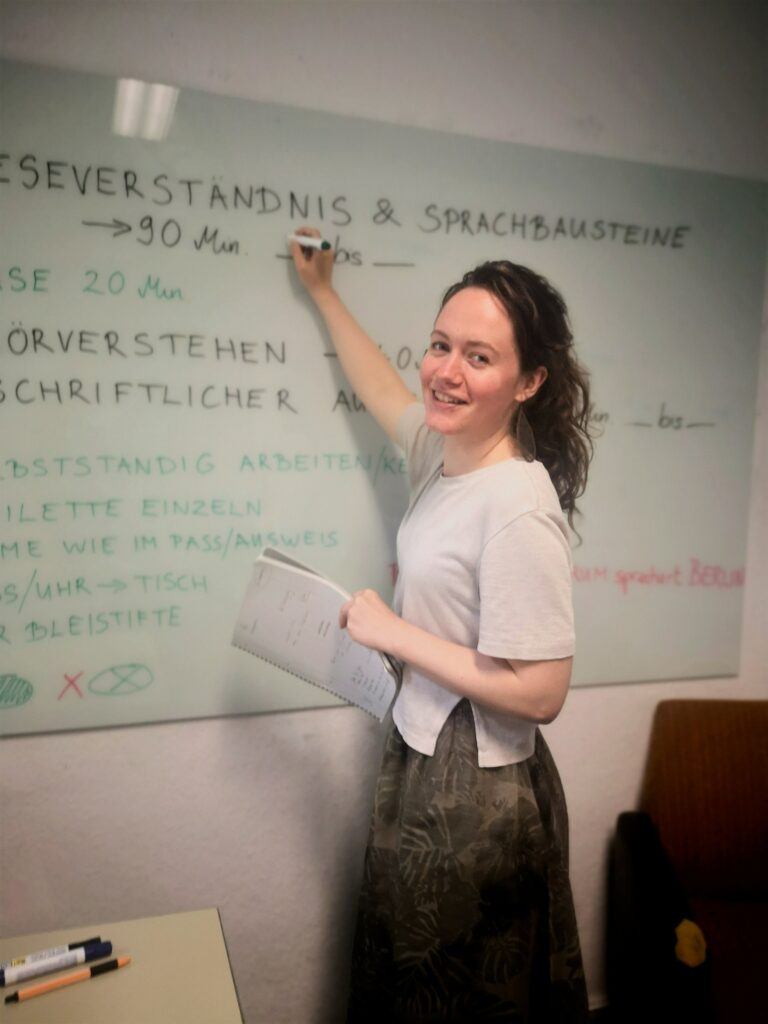 ESEVERSTÄNDNIS & SPRACHBAUSTEINE
→ 90 Min. __ bis __
SE 20 Min
ÖRVERSTEHEN
SCHRIFTLICHER AU __ bis __
BSTSTÄNDIG ARBEITEN/KE
ILETTE EINZELN
ME WIE IM PASS/AUSWEIS
S/UHR → TISCH
R BLEISTIFTE
RUM sprachert BERLIN